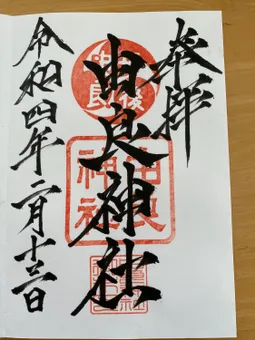 奉拝
由良神社
令和四年二月十三日
由良
神社